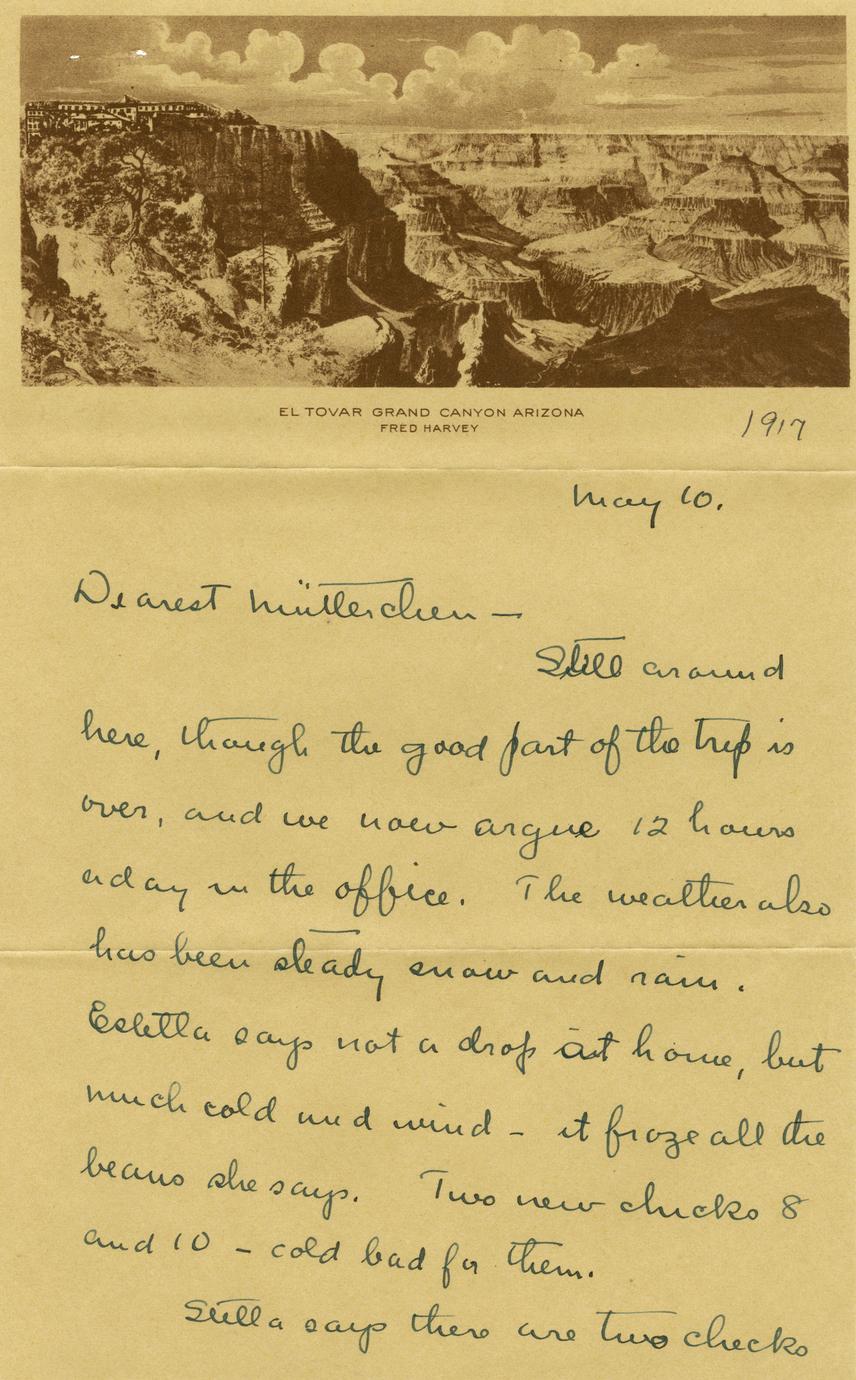 EL TOVAR GRAND CANYON ARIZONA
FRED HARVEY
1917
May 10.
Dearest Mütterchen —
Still around
here, though the good part of the trip is
over, and we now argue 12 hours
a day in the office. The weather also
has been steady snow and rain.
Estella says not a drop at home, but
much cold and wind - it froze all the
beans she says. Two new chicks 8
and 10 - cold bad for them.
Stella says there are two checks